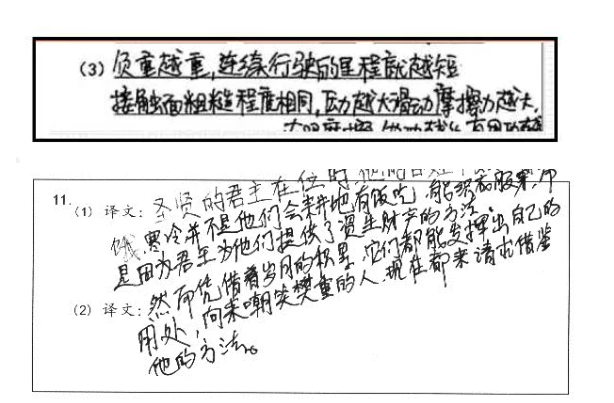 (3) 负重越重，连续行驶的里程就越短
接触面粗糙程度相同，压力越大滑动摩擦力越大，
11.
(1) 译文：圣贤的君主在位时
寒冷并不是他们会耕地有饭吃，能织衣服穿，而
是因为君王为他们提供了资生财产的方法。
(2) 译文：然而凭借着岁月的积累，它们都能发挥出自己的
用处，向来嘲笑樊重的人，现在都来请求借鉴
他的方法。